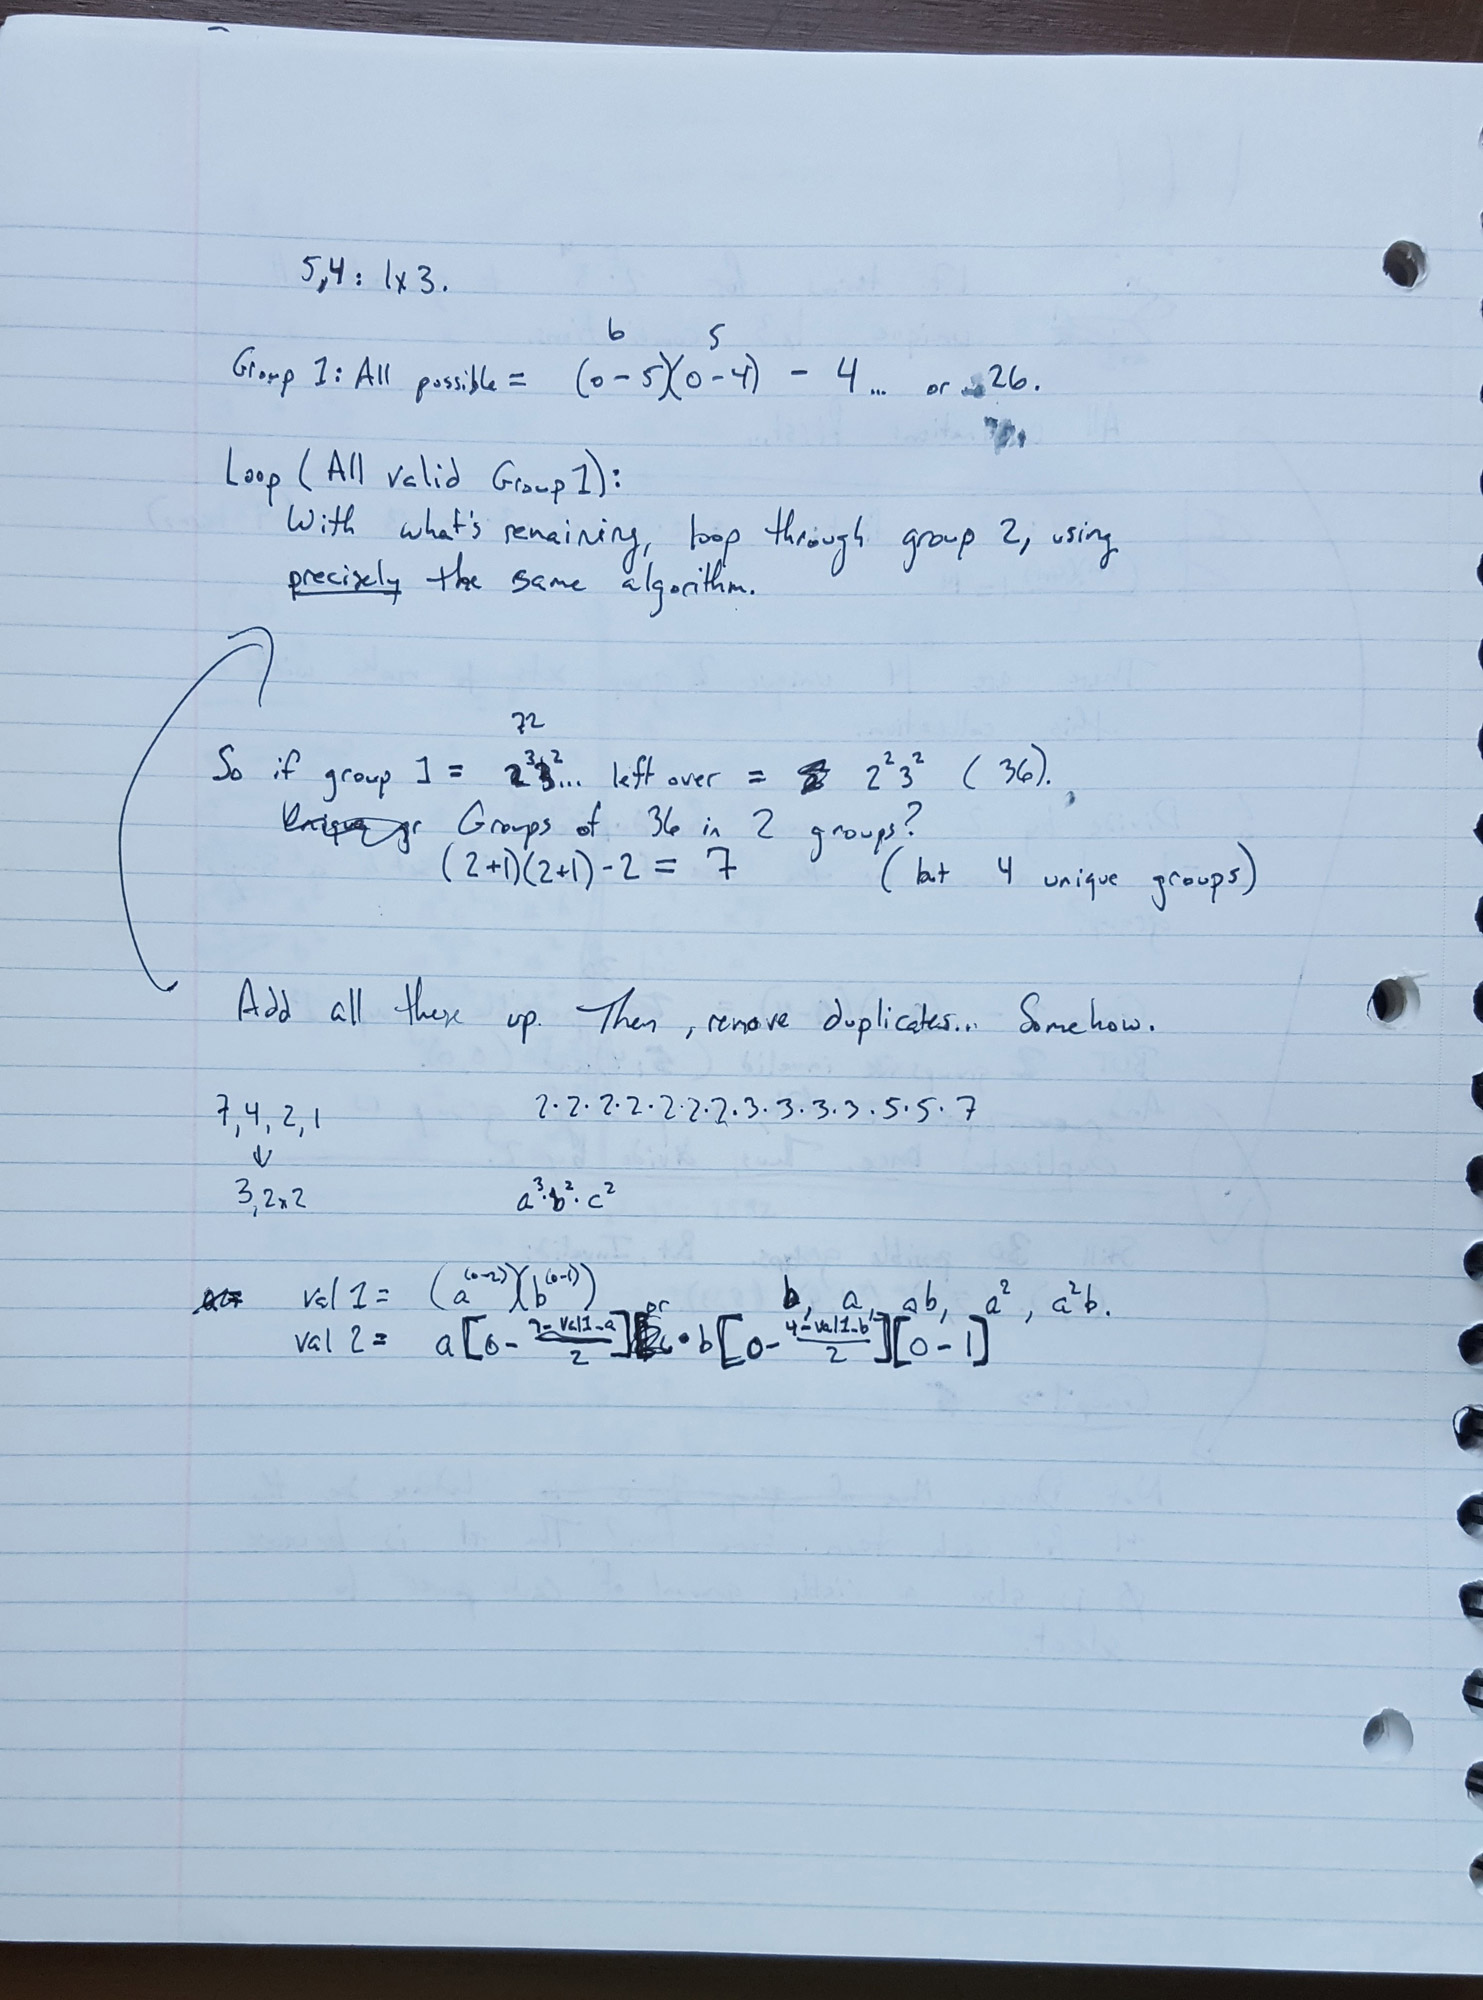 5,4: 1x3.
6 5
Group 1: All possible = (0-5)(0-4) - 4... or 26.
Loop (All valid Group 1):
With what's remaining, loop through group 2, using
precisely the same algorithm.
72
So if group 1 = 2³3²... left over = 2²3² (36).
Groups of 36 in 2 groups?
(2+1)(2+1)-2 = 7 (but 4 unique groups)
Add all these up. Then, remove duplicates... Somehow.
7,4,2,1 2·2·2·2·2·2·2·3·3·3·3·5·5·7
↓
3,2x2 a³·b²·c²
val 1 = (a^(0-2))(b^(0-1)) b, a, ab, a², a²b.
val 2 = a[0 - (7-val1-a)/2] or · b[0 - (4-val1-b)/2][0-1]